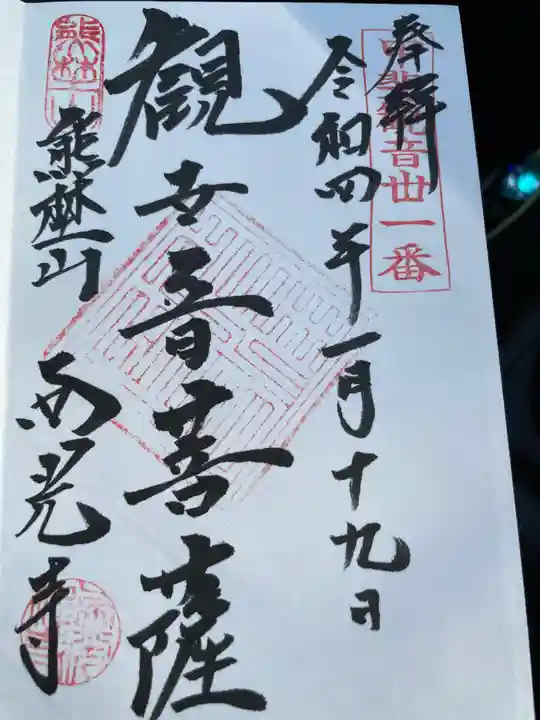 奉拝
観音丗一番
令和四年一月十九日
観世音菩薩
熊埜山
熊埜山 西光寺